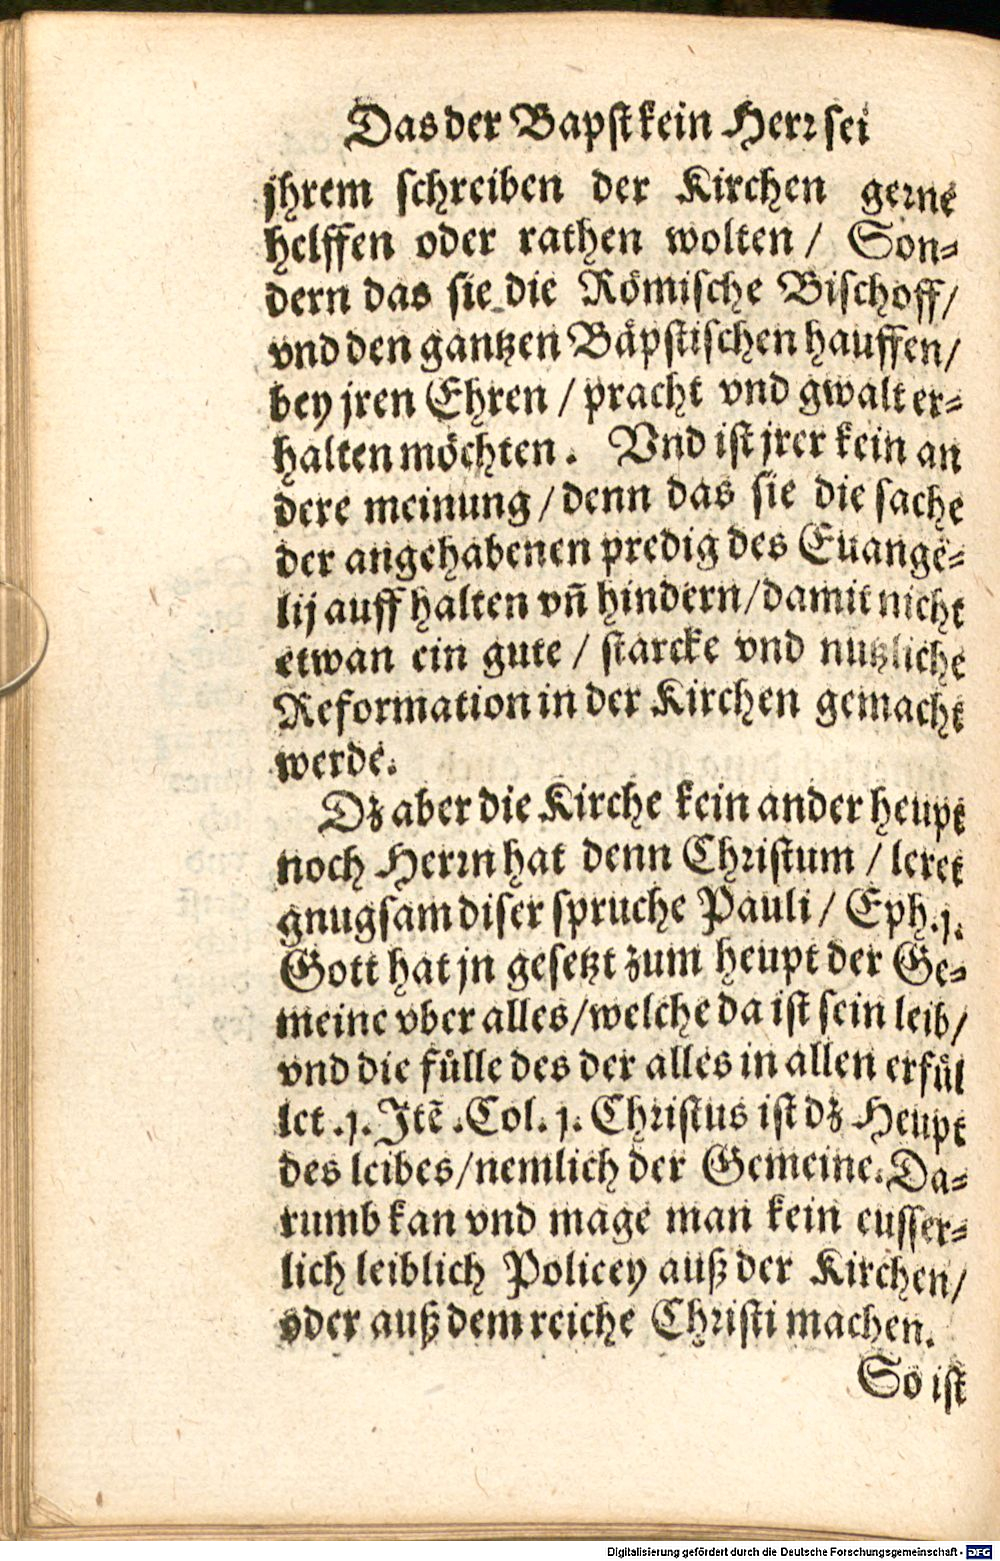 Das der Bapst kein Herr sei
jhrem schreiben der Kirchen gerne
helffen oder rathen wolten / Son-
dern das sie die Römische Bischoff/
vnd den gantzen Bäpstischen hauffen/
bey jren Ehren / pracht vnd gwalt er-
halten möchten. Vnd ist jrer kein an
dere meinung / denn das sie die sache
der angehabenen predig des Euange-
lij auff halten vñ hindern/damit nicht
etwan ein gute / starcke vnd nutzliche
Reformation in der Kirchen gemacht
werde.
Dz aber die Kirche kein ander heupt
noch Herrn hat denn Christum / leret
gnugsam diser spruche Pauli / Eph.j.
Gott hat jn gesetzt zum heupt der Ge-
meine vber alles/welche da ist sein leib/
vnd die fülle des der alles in allen erfül
let .j. Itē .Col. j. Christus ist dz Heupt
des leibes/nemlich der Gemeine. Da-
rumb kan vnd mage man kein eusser-
lich leiblich Policey auß der Kirchen/
oder auß dem reiche Christi machen.
So ist
Digitalisierung gefördert durch die Deutsche Forschungsgemeinschaft - DFG